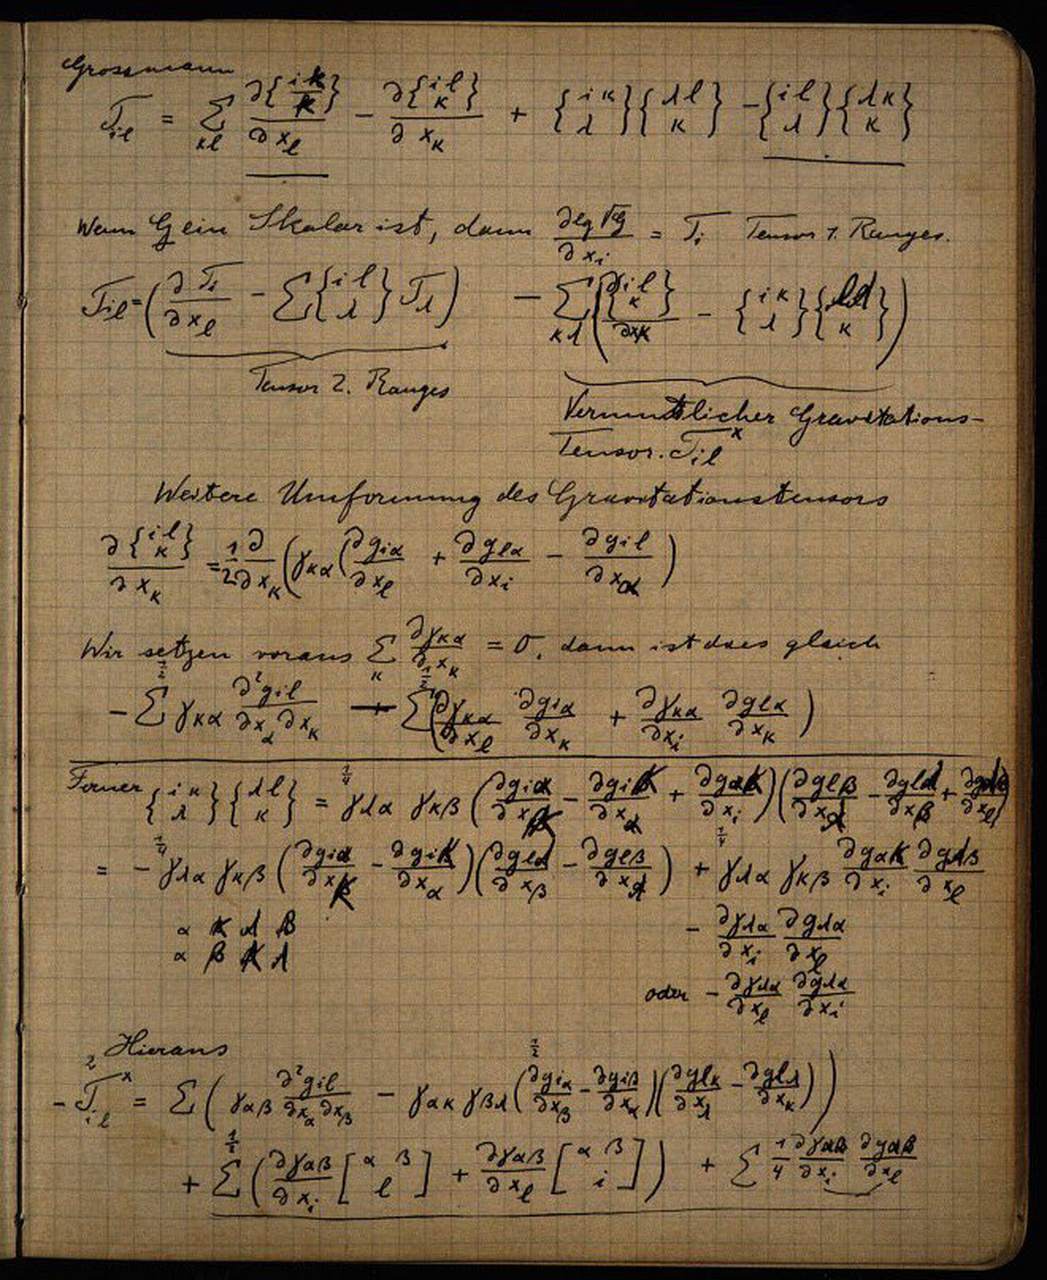 Grossmann
T_il = Σ_κl ∂{i κ / κ}/∂x_l − ∂{i l / κ}/∂x_κ + {i κ / λ}{λ l / κ} − {i l / λ}{λ κ / κ}
Wenn G ein Skalar ist, dann ∂lg√G/∂x_i = T_i Tensor 1. Ranges.
T_il = (∂T_i/∂x_l − Σ{i l / λ} T_λ) − Σ_κλ (∂{i l / κ}/∂x_κ − {i κ / λ}{λ l / κ})
Tensor 2. Ranges
Vermutlicher Gravitations-
Tensor. T_il^x
Weitere Umformung des Gravitationstensors
∂{i l / κ}/∂x_κ = 1/2 ∂/∂x_κ (γ_κα (∂g_iα/∂x_l + ∂g_lα/∂x_i − ∂g_il/∂x_α)
Wir setzen voraus Σ_κ ∂γ_κα/∂x_κ = 0, dann ist dies gleich
− 1/2 Σ γ_κα ∂²g_il/∂x_α∂x_κ + 1/2 Σ (∂γ_κα/∂x_l ∂g_iα/∂x_κ + ∂γ_κα/∂x_i ∂g_lα/∂x_κ)
Ferner {i κ / λ}{λ l / κ} = 1/4 γ_λα γ_κβ (∂g_iα/∂x_κ − ∂g_iκ/∂x_α + ∂g_ακ/∂x_i)(∂g_lβ/∂x_λ − ∂g_lλ/∂x_β + ∂g_λβ/∂x_l)
= − 1/4 γ_λα γ_κβ (∂g_iα/∂x_κ − ∂g_iκ/∂x_α)(∂g_lλ/∂x_β − ∂g_lβ/∂x_λ) + 1/4 γ_λα γ_κβ ∂g_ακ/∂x_i ∂g_λβ/∂x_l
α κ λ β − ∂γ_λα/∂x_i ∂g_λα/∂x_l
α β κ λ
oder − ∂γ_λα/∂x_l ∂g_λα/∂x_i
Hieraus
− 2 T_il^x = Σ (γ_αβ ∂²g_il/∂x_α∂x_β − 1/2 γ_ακ γ_βλ (∂g_iα/∂x_β − ∂g_iβ/∂x_α)(∂g_lκ/∂x_λ − ∂g_lλ/∂x_κ))
+ 1/2 Σ (∂γ_αβ/∂x_i [α β / l] + ∂γ_αβ/∂x_l [α β / i]) + Σ 1/4 ∂γ_αβ/∂x_i ∂g_αβ/∂x_l